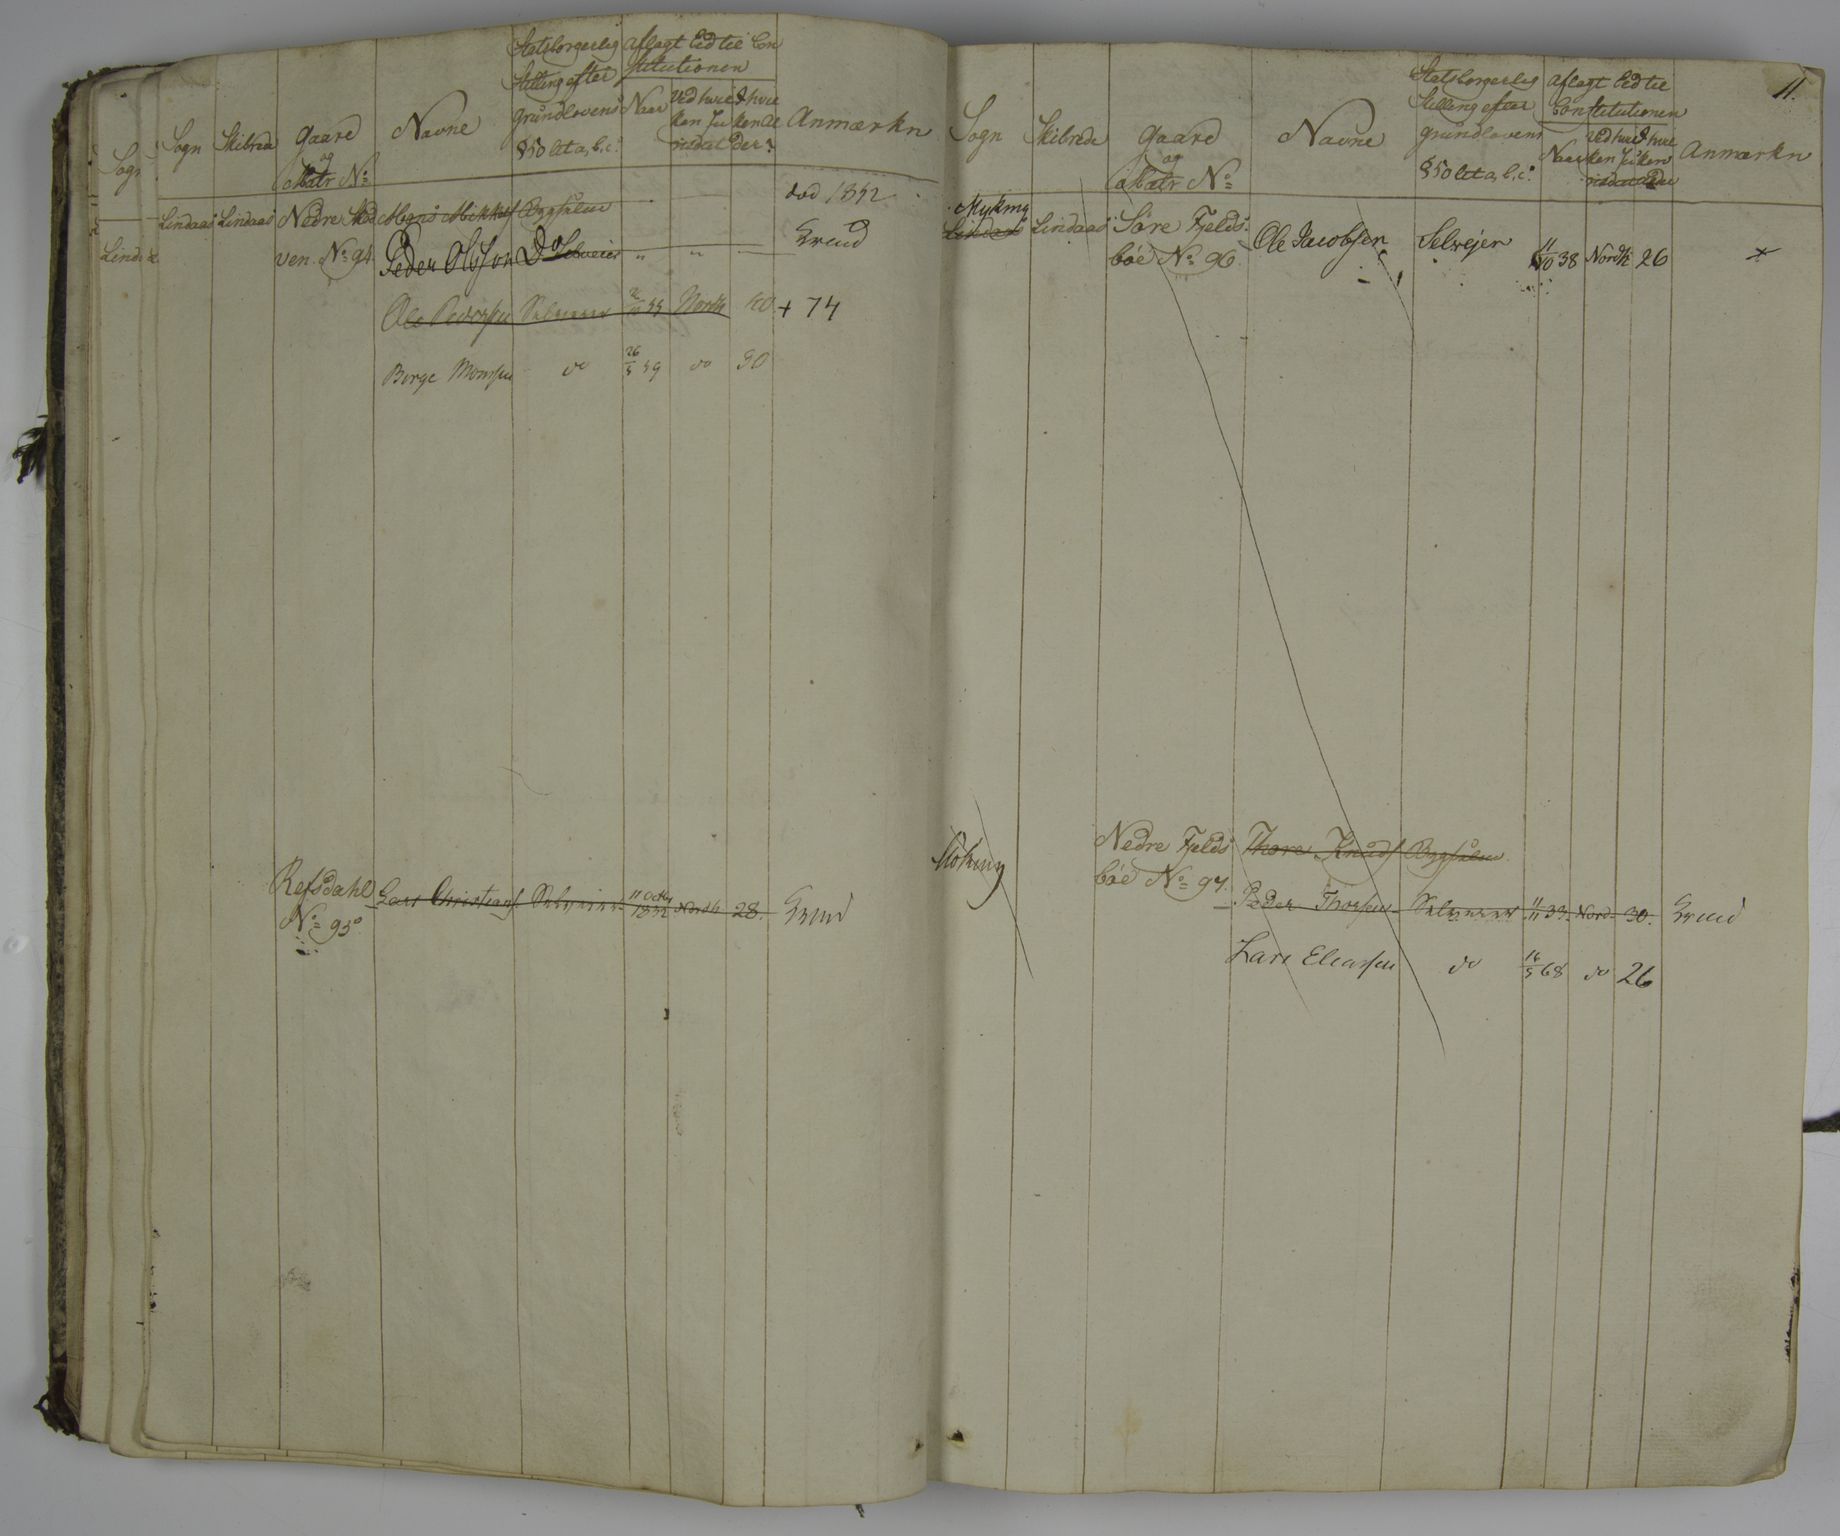 Sogn
Skibrede
Gaard
og
Matr No
Navne
Statsborgerlig
Stilling efter
Grundlovens
§50 Lit a, b, c.
Aflagt Eed til Con
stitutionen
Naar
Ved hvil
ken Ju
Anmærkn
Lindaas Lindaas Nedre Skod Mons Mikkels Bygselm død 1852
ven No 94 Peder Olsson Do Selveier " " — Grend
Ole Pedersen Selveier Nordh 40 + 74
Børge Monsen do 26/5 59 do 30
Refsdahl Lars Christians Selveier 11 Octbr 1832 Nordh 28. Grend
No 95
11.
Sogn
Skibrede
Gaard
og
Matr No
Navne
Statsborgerlig
Stilling efter
Grundlovens
§50 Lit a, b, c.
Aflagt Eed til
Constitutionen
Naar
Ved hvil
ken Ju
Anmærkn
Myking
Lindaas Lindaas Søre Fjelds
bøe No 96 Ole Jacobsen Selvejer 11/10 38 Nordh 26
Myking
Nedre Fjelds Thore Knuds Bygselm
bøe No 97. Peder Thorsen Selveier 11/11 33 Nord 30. Grend
Lars Eliassen do 16/5 68 do 26